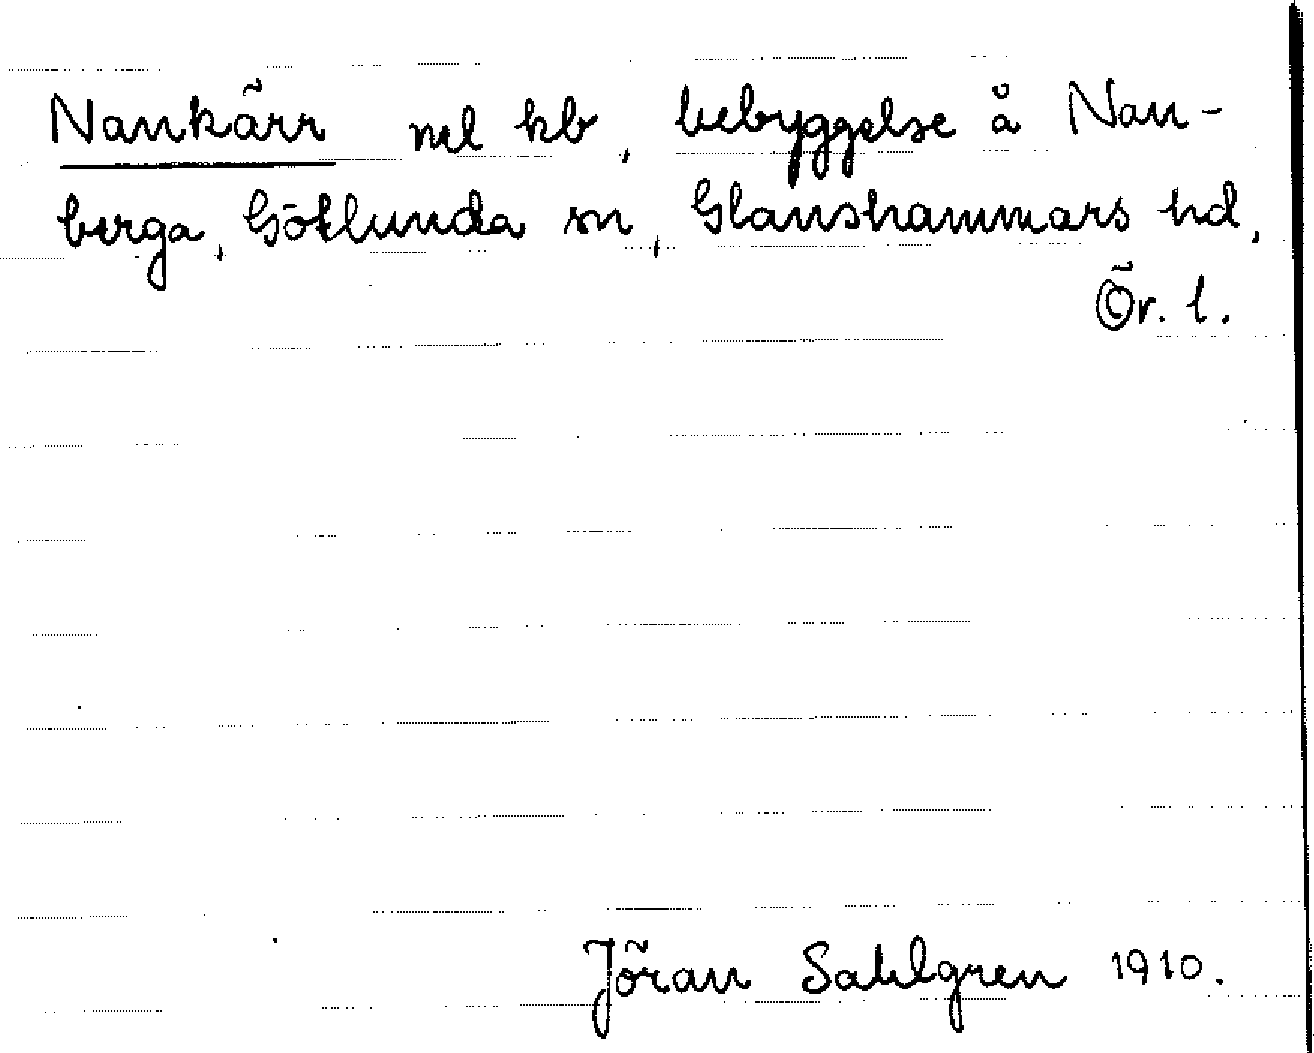 Nankärr nel kb, bebyggelse å Nan-
berga, Götlunda sn, Glanshammars hd,
Ör. l.
Jöran Sahlgren 1910.